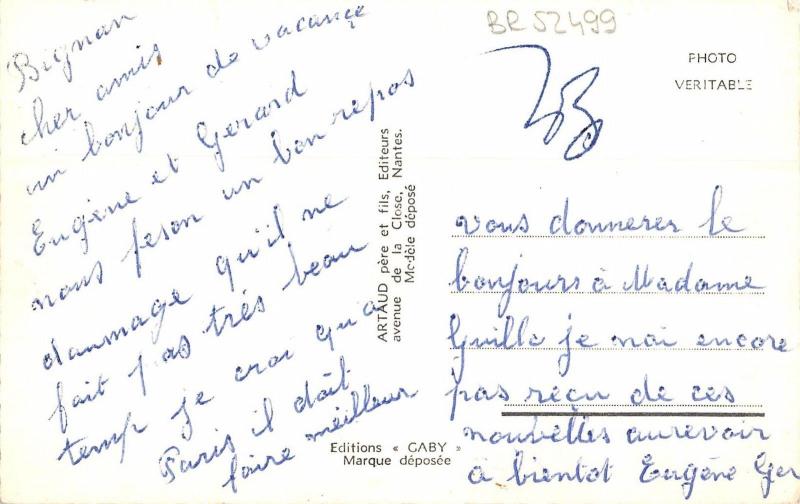 Bignan
cher amis
un bonjour de vacançe
Eugène et Gerard
nous feson un bon repos
daumage qu'il ne
fait pas très beau
temp je croi qu'a
Paris il doit
faire meilleur
ARTAUD père et fils, Editeurs
avenue de la Close, Nantes.
Modèle déposé
Editions « GABY »
Marque déposée
BR 52499
PHOTO
VERITABLE
vous donnerer le
bonjours à Madame
Guille je nai encore
pas reçu de ces
nouvelles aurevoir
a bientot Eugène Ger